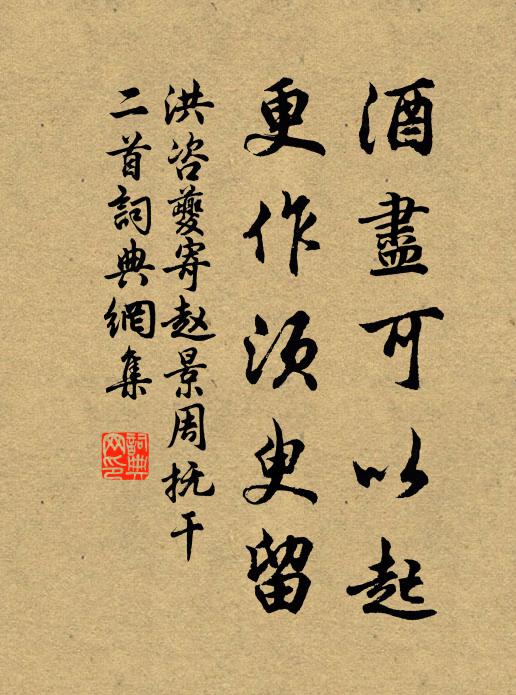 酒盡可以起
更作須臾留
洪咨夔寄赵景周抚干
二首詞典網集
詞典网印